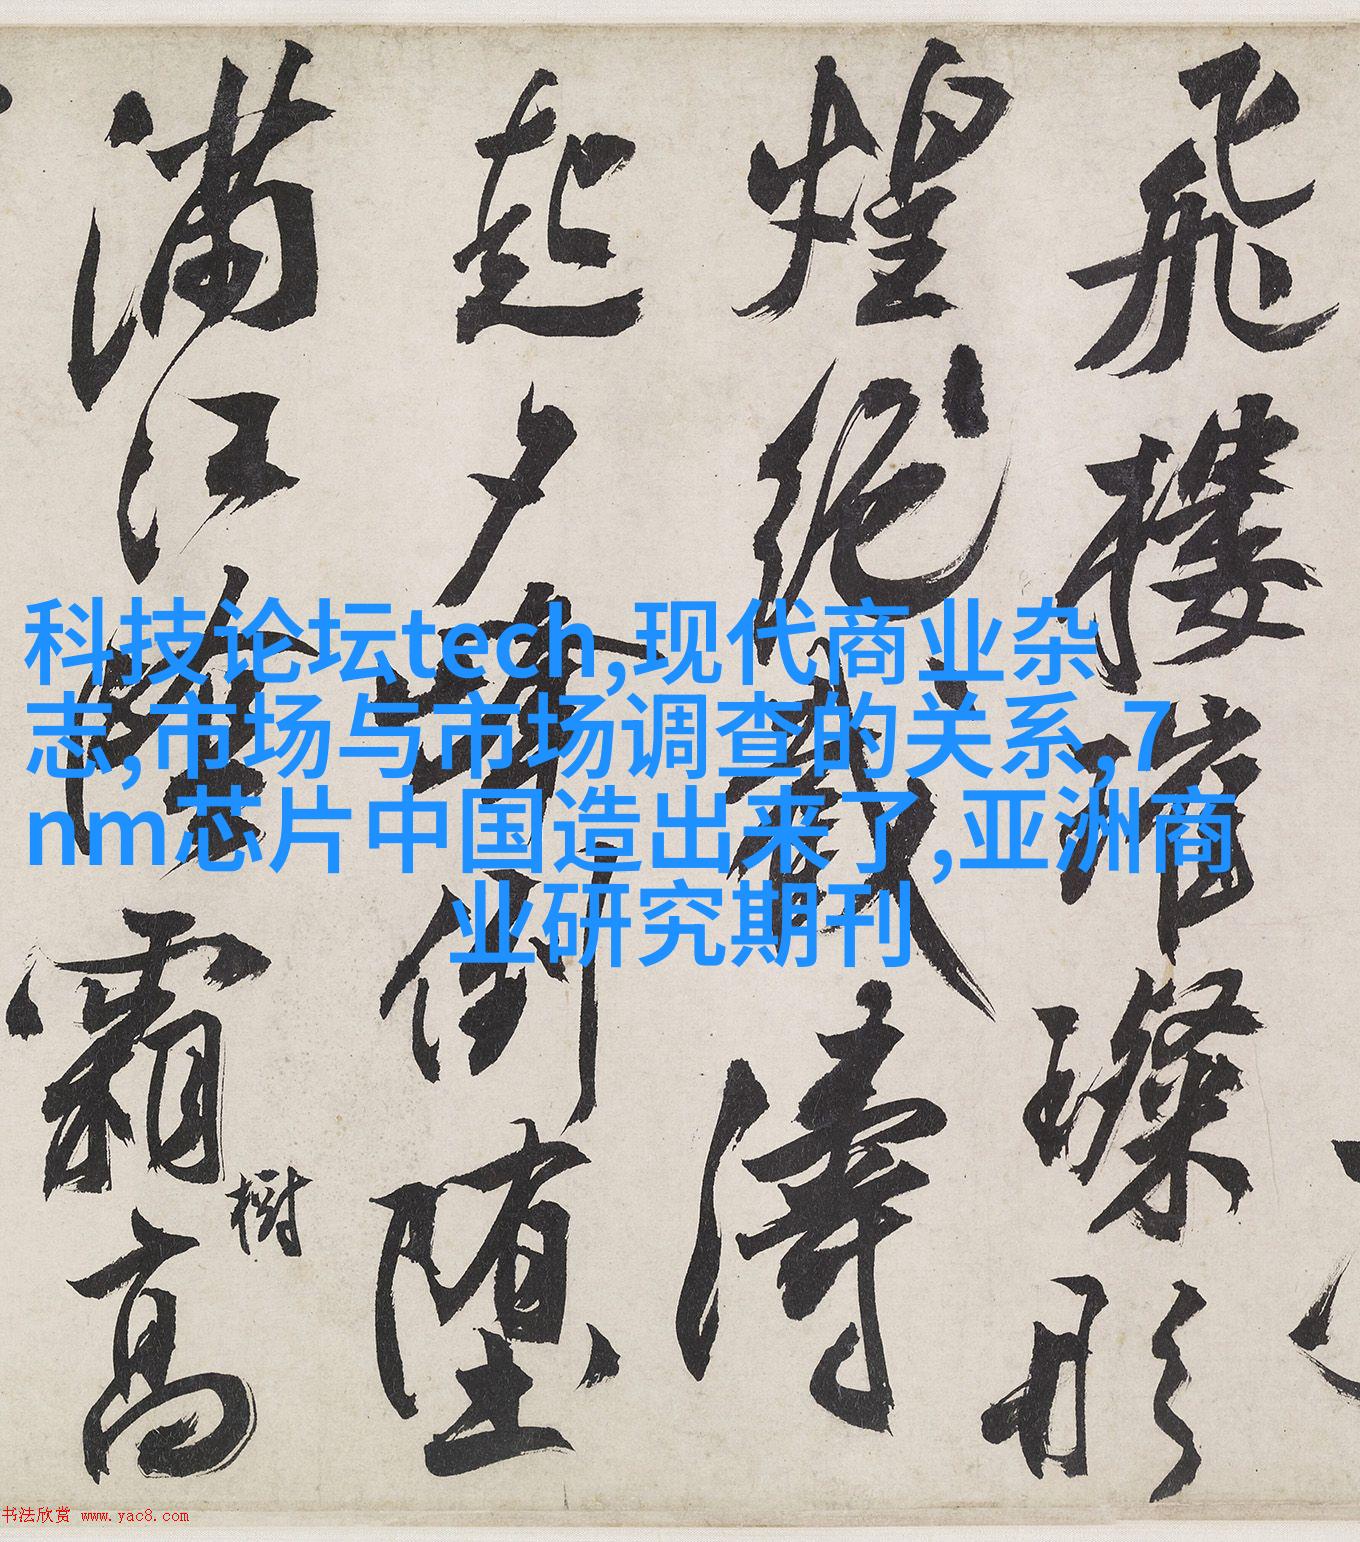 飛樓璀璨形
煌絕截濤
起夕倒墮
滿江霜高
樹
科技论坛tech,现代商业杂
志,市场与市场调查的关系,7
nm芯片中国造出来了,亚洲商
业研究期刊
书法欣赏 www.yac8.com